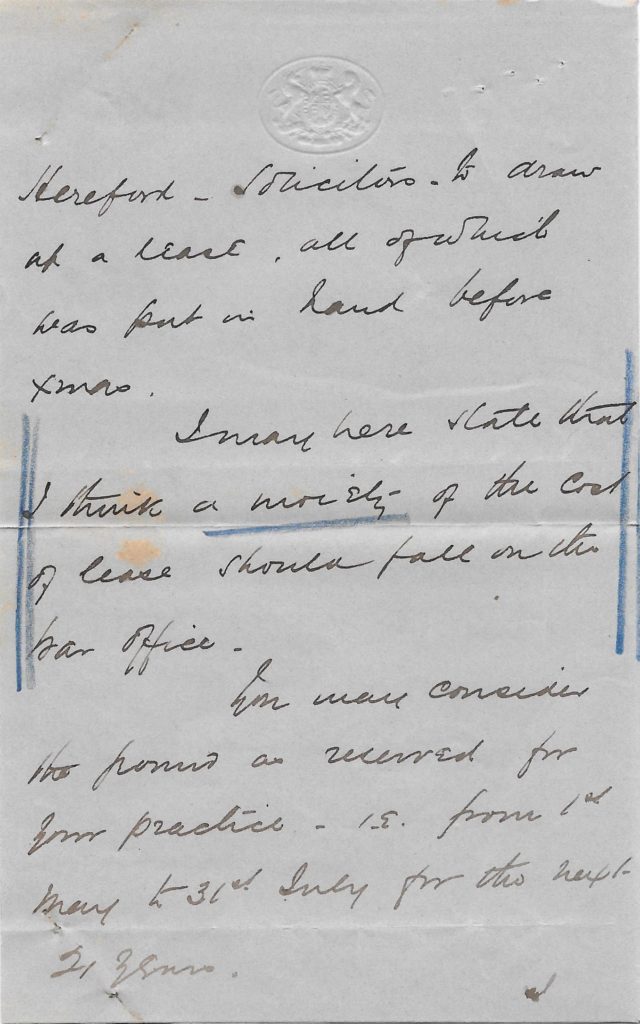 Hereford - Solicitors - to draw
up a lease, all of which
was put in hand before
xmas.
I may here state that
I think a moiety of the cost
of lease should fall on the
War Office -
You may consider
the ground as reserved for
your practice - i.e. from 1st
May to 31st July for the next
21 years.